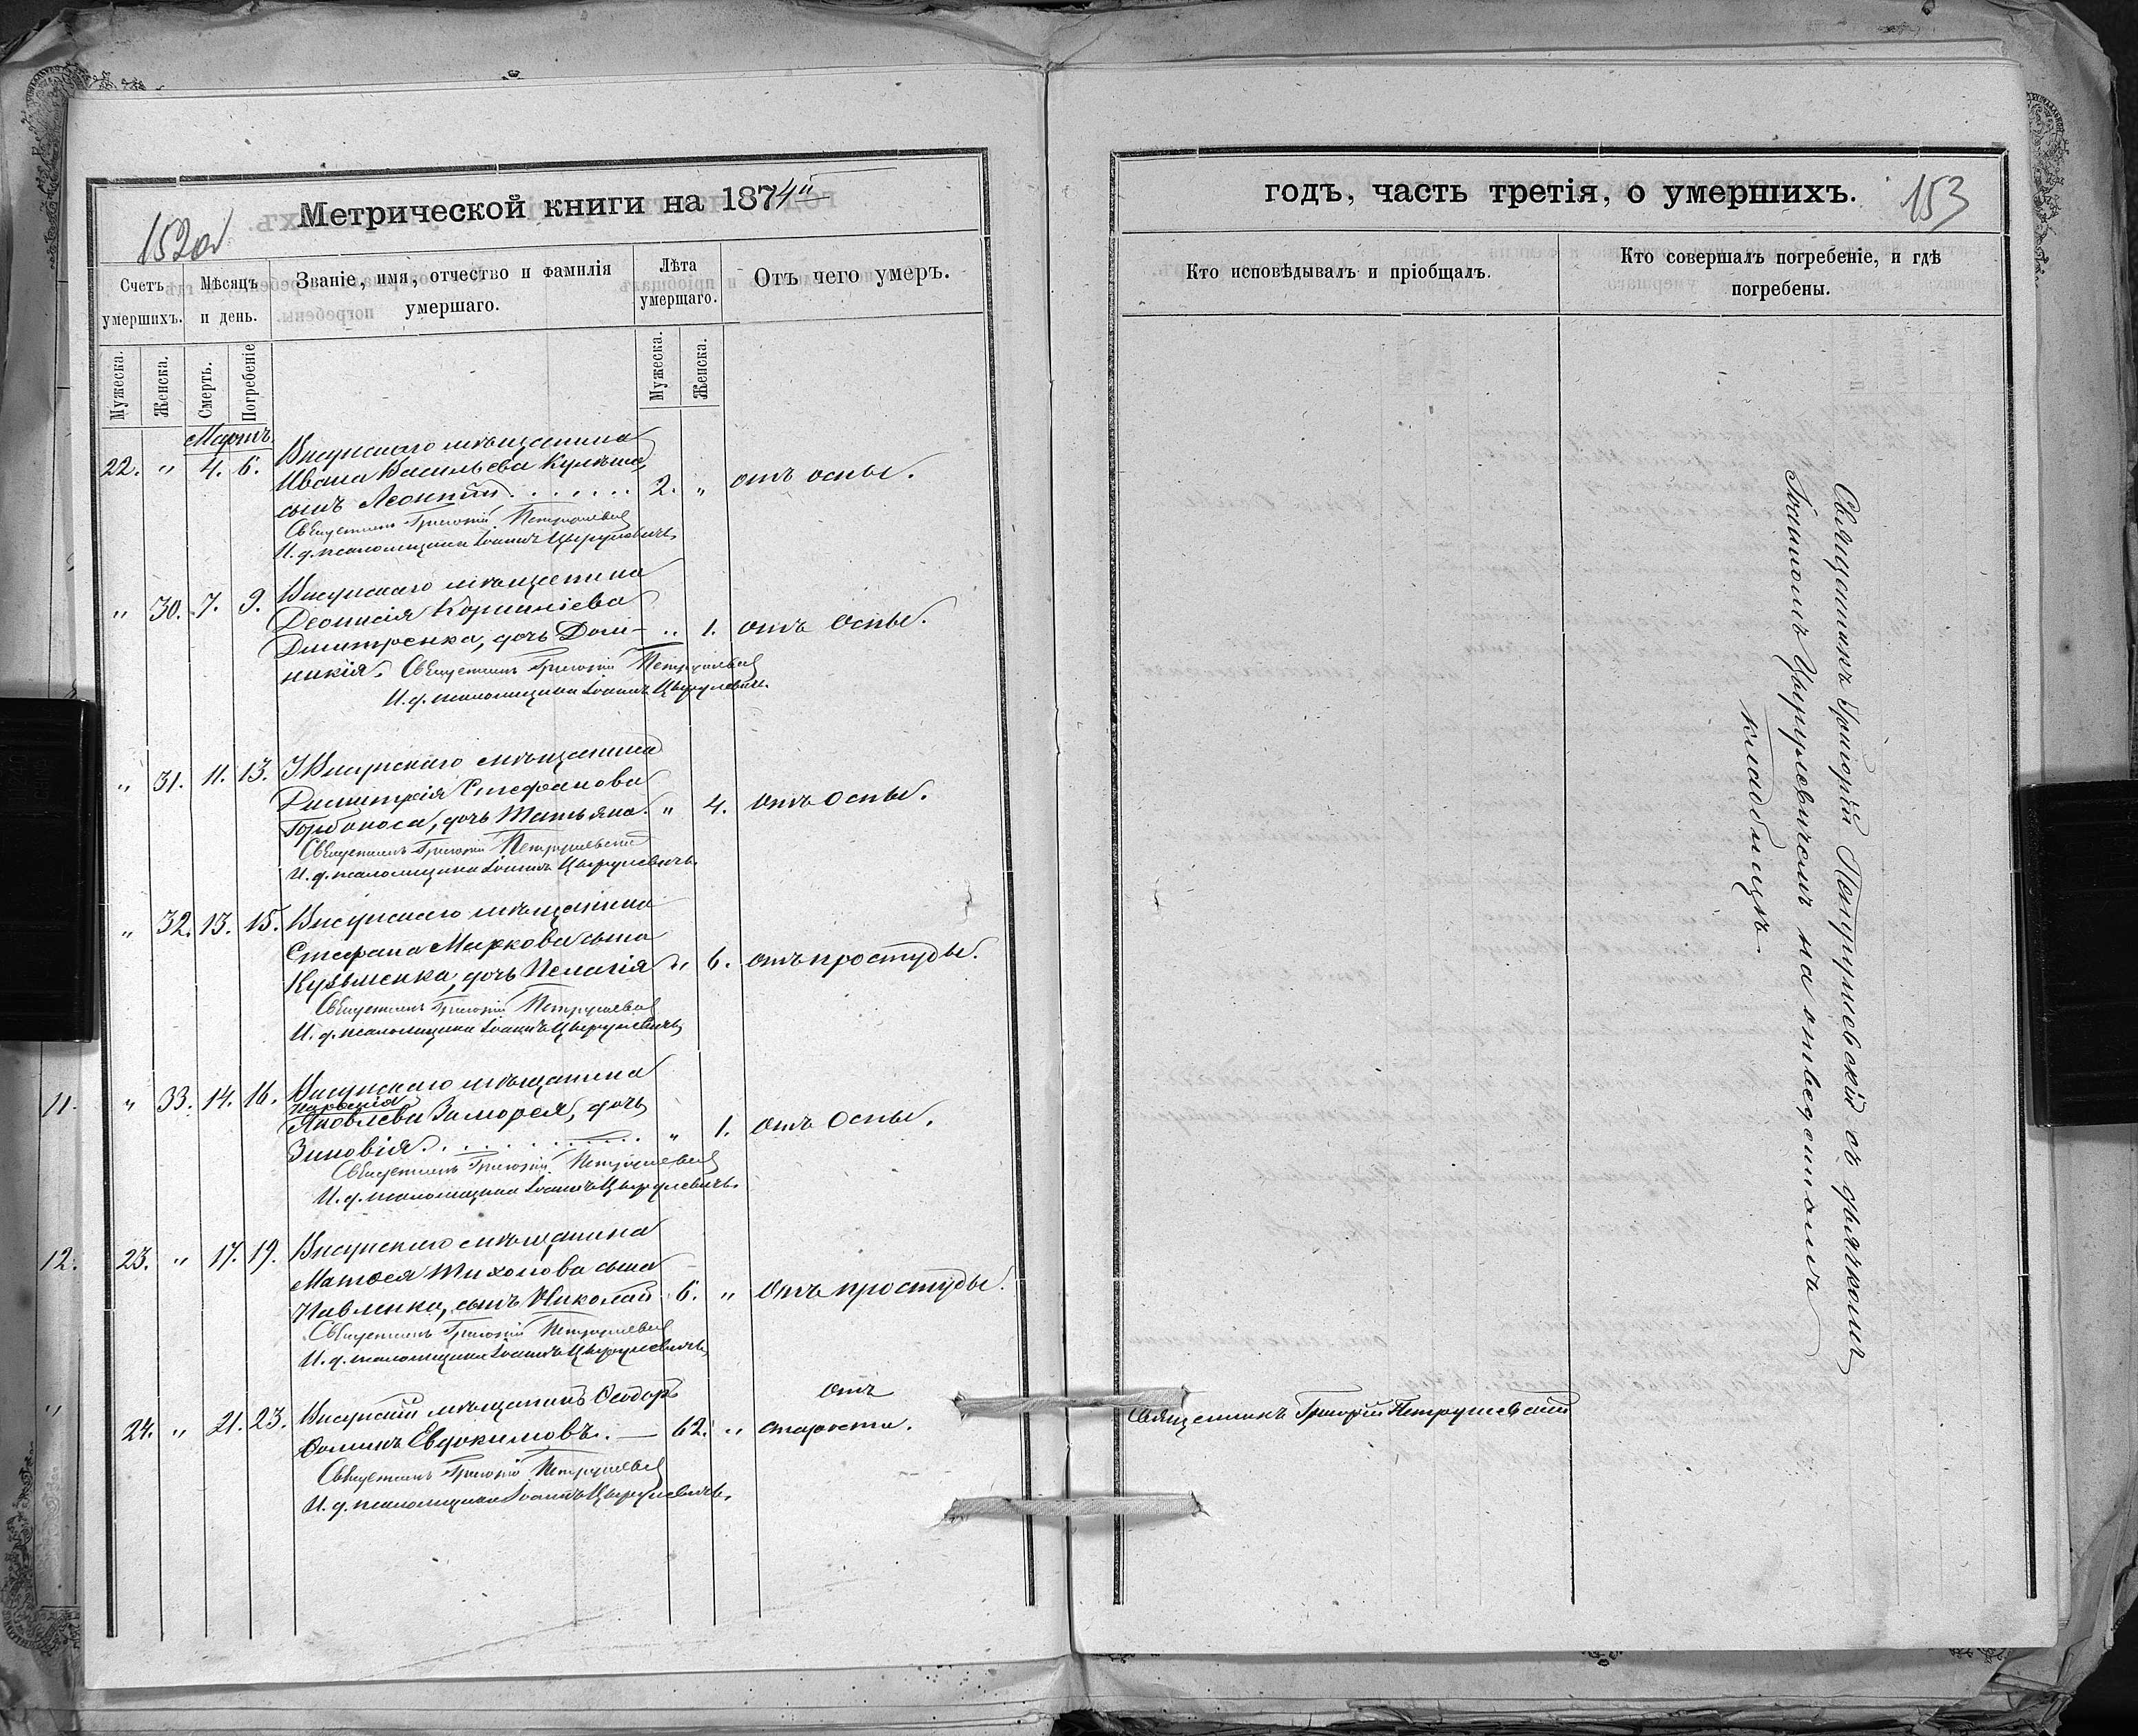 Метрической книги на 1874й
152об
Счетъ умершихъ.
Мѣсяцъ и день.
Званіе, имя, отчество и фамилія умершаго.
Лѣта умершаго.
Отъ чего умеръ.
Мужеска.
Женска.
Смерть.
Погребеніе
Мужеска.
Женска.
Мартъ
22. " 4. 6. Висунскаго мѣщанина
Ивана Васильева
сынъ Леонтій. . . . . . . 2. " отъ оспы.
Священникъ Григорій Петрушевскій
И. д. псаломщика Іоаннъ Цырулевичъ
" 30. 7. 9. Висунскаго мѣщанина
Деонисія Корниліева
Димитренка, дочь Доми- " 1. отъ Оспы.
никія. Священникъ Григорій Петрушевскій
И. д. псаломщика Іоаннъ Цырулевичъ.
" 31. 11. 13. Висунскаго мѣщанина
Димитрія Стефанова
Горбоноса, дочь Татьяна. " 4. отъ Оспы.
Священникъ Григорій Петрушевскій
И. д. псаломщика Іоаннъ Цырулевичъ.
" 32. 13. 15. Висунскаго мѣщанина
Стефана Маркова сына
Кузьменка, дочь Пелагія " 6. отъ простуды.
Священникъ Григорій Петрушевскій
И. д. псаломщика Іоаннъ Цырулевичъ
11. " 33. 14. 16. Висунскаго мѣщанина
Яковлева Заморея, дочь
Зиновія. . . . . . . . . . " 1. отъ Оспы.
Священникъ Григорій Петрушевскій
И. д. псаломщика Іоаннъ Цырулевичъ.
12. 23. " 17. 19. Висунскаго мѣщанина
Матвея Тихонова сына
Павленка, сынъ Николай 6. " отъ простуды.
Священникъ Григорій Петрушевскій
И. д. псаломщика Іоаннъ Цырулевичъ
24. " 21. 23. Висунскій мѣщанинъ Ѳеодоръ отъ
Ѳоминъ Евдокимовъ. — 62. " старости.
Священникъ Григорій Петрушевскій
И. д. псаломщика Іоаннъ Цырулевичъ.
годъ, часть третія, о умершихъ.
153
Кто исповѣдывалъ и пріобщалъ.
Кто совершалъ погребеніе, и гдѣ
погребены.
Священникъ Григорій Петрушевскій съ дьячкомъ
Іоанномъ Цырулевичемъ на отведенномъ
кладбищѣ.
Священникъ Григорій Петрушевскій